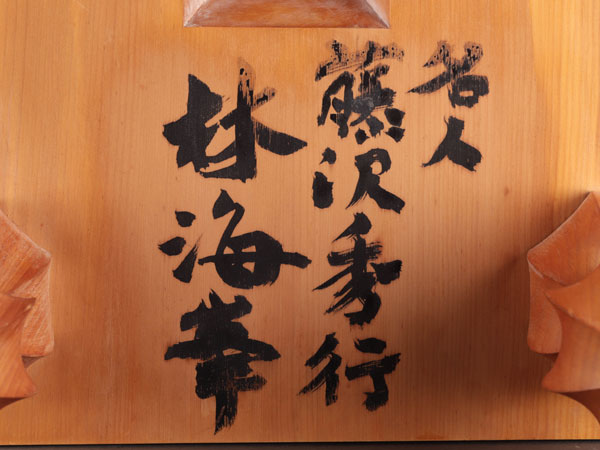 名人
藤沢秀行
林海峯